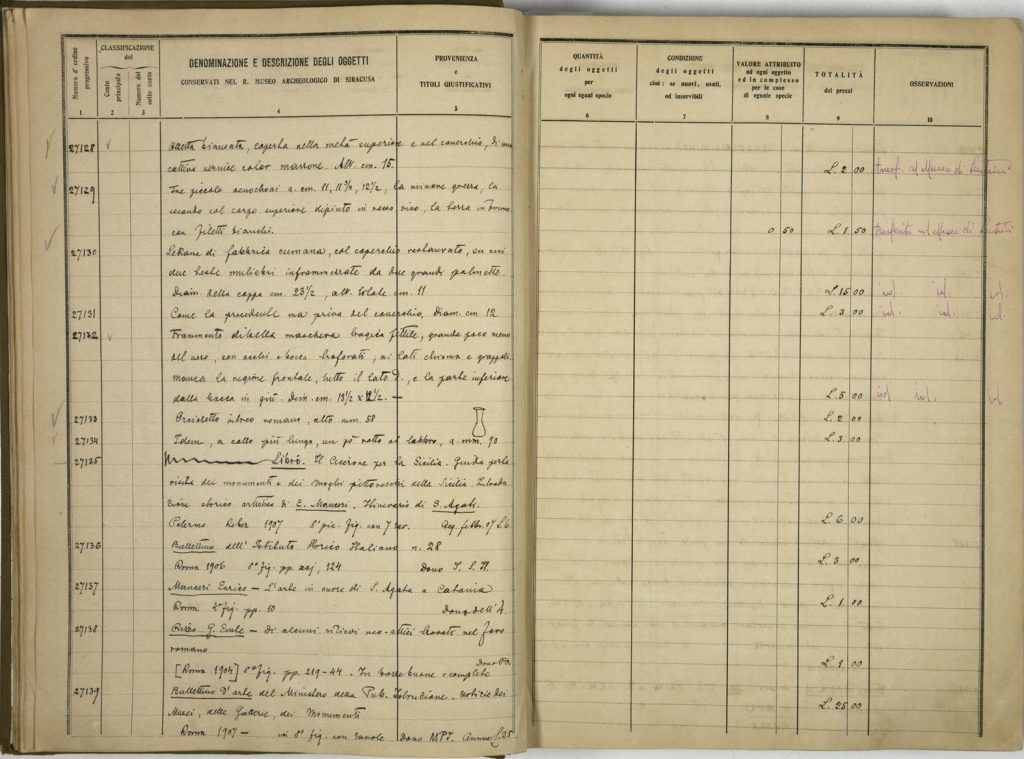 Numero d'ordine progressivo
CLASSIFICAZIONE
del
Conto principale
Numero del sotto conto
DENOMINAZIONE E DESCRIZIONE DEGLI OGGETTI
CONSERVATI NEL R. MUSEO ARCHEOLOGICO DI SIRACUSA
PROVENIENZA
e
TITOLI GIUSTIFICATIVI
1 2 3 4 5
27128 biansata, coperta nella metà superiore e nel coverchio, di una
cattiva vernice color marrone. Alt. cm. 15.
27129 Tre piccole oenochoai a. cm. 11, 11 3/4, 12 1/2, la minore grezza, la
seconda col corpo superiore dipinto in rosso vivo, la terza in bruno
con filetti bianchi.
27130 Lekane di fabbrica cumana, col coperchio restaurato, su cui
due teste muliebri inframmezzate da due grandi palmette.
Diam. della coppa cm. 23 1/2, alt. totale cm. 11
27131 Come la precedente ma priva del coverchio. Diam. cm. 12
27132 Frammento di bella maschera tragica fittile, grande poco meno
del vero, con occhi e bocca traforati, ai lati chioma e grappoli
manca la regione frontale, tutto il lato d., e la parte inferiore
dalla bocca in giù. Dim. cm. 13 1/2 x 12 1/2. —
27133 Orcioletto vitreo romano, alto mm. 58
27134 Idem, a collo più lungo, un pò rotto al labbro, a. mm. 90
27135 Libro. Il Cicerone per la Sicilia. Guida per la
visita dei monumenti e dei luoghi pittoreschi della Sicilia.
storico artistica di E. Mauceri. Itinerario di S. Agati.
Palermo Reber 1907 8° pic. fig. con 7 tav. Acq. febbr. 07 L. 6
27136 Bullettino dell'Istituto Storico Italiano n. 28
Roma 1906 8° fig. pp. 124 Dono I. S. I.
27137 Mauceri Enrico — L'arte in onore di S. Agata a Catania
Roma 4° fig. pp. 10 Dono dell'A.
27138 Rizzo G. Emile — Di alcuni rilievi neo-attici trovati nel foro
romano
[Roma 1904] 8° fig. pp. 219-44. In
27139 Bullettino d'arte del Ministero della Pub. Istruzione. Notizie dei
Musei, delle Gallerie, dei Monumenti
Roma 1907 — in 8° fig. con tavole Dono MPI. Annue L. 25
QUANTITÀ
degli oggetti
per
ogni eguai specie
CONDIZIONE
degli oggetti
cioè: se nuovi, usati,
od inservibili
VALORE ATTRIBUITO
ad ogni oggetto
ed in complesso
per le cose
di eguale specie
TOTALITÀ
dei prezzi
OSSERVAZIONI
6 7 8 9 10
L. 2 00 trasf. al Museo di Lentini
0 50 L. 1 50 trasferito al Museo di Lentini
L. 15 00 id. id. id.
L. 3 00 id. id. id.
L. 5 00 id id. id
L. 2 00
L. 3 00
L. 6 00
L. 3 00
L. 1 00
L. 1 00
L. 25 00